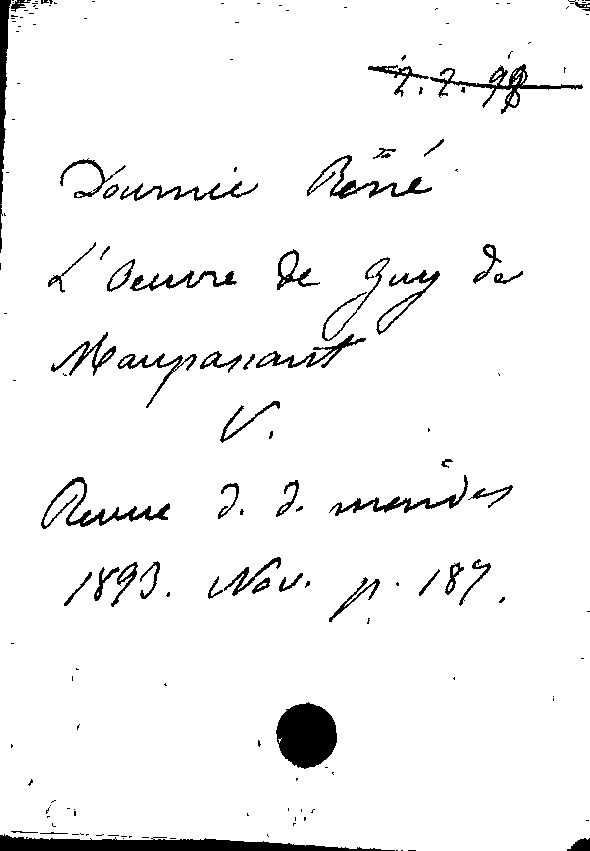 2.2.98
Doumic René
L'Oeuvre de Guy de
Maupassant
V.
Revue d. d. mondes
1893. Nov. p. 187.